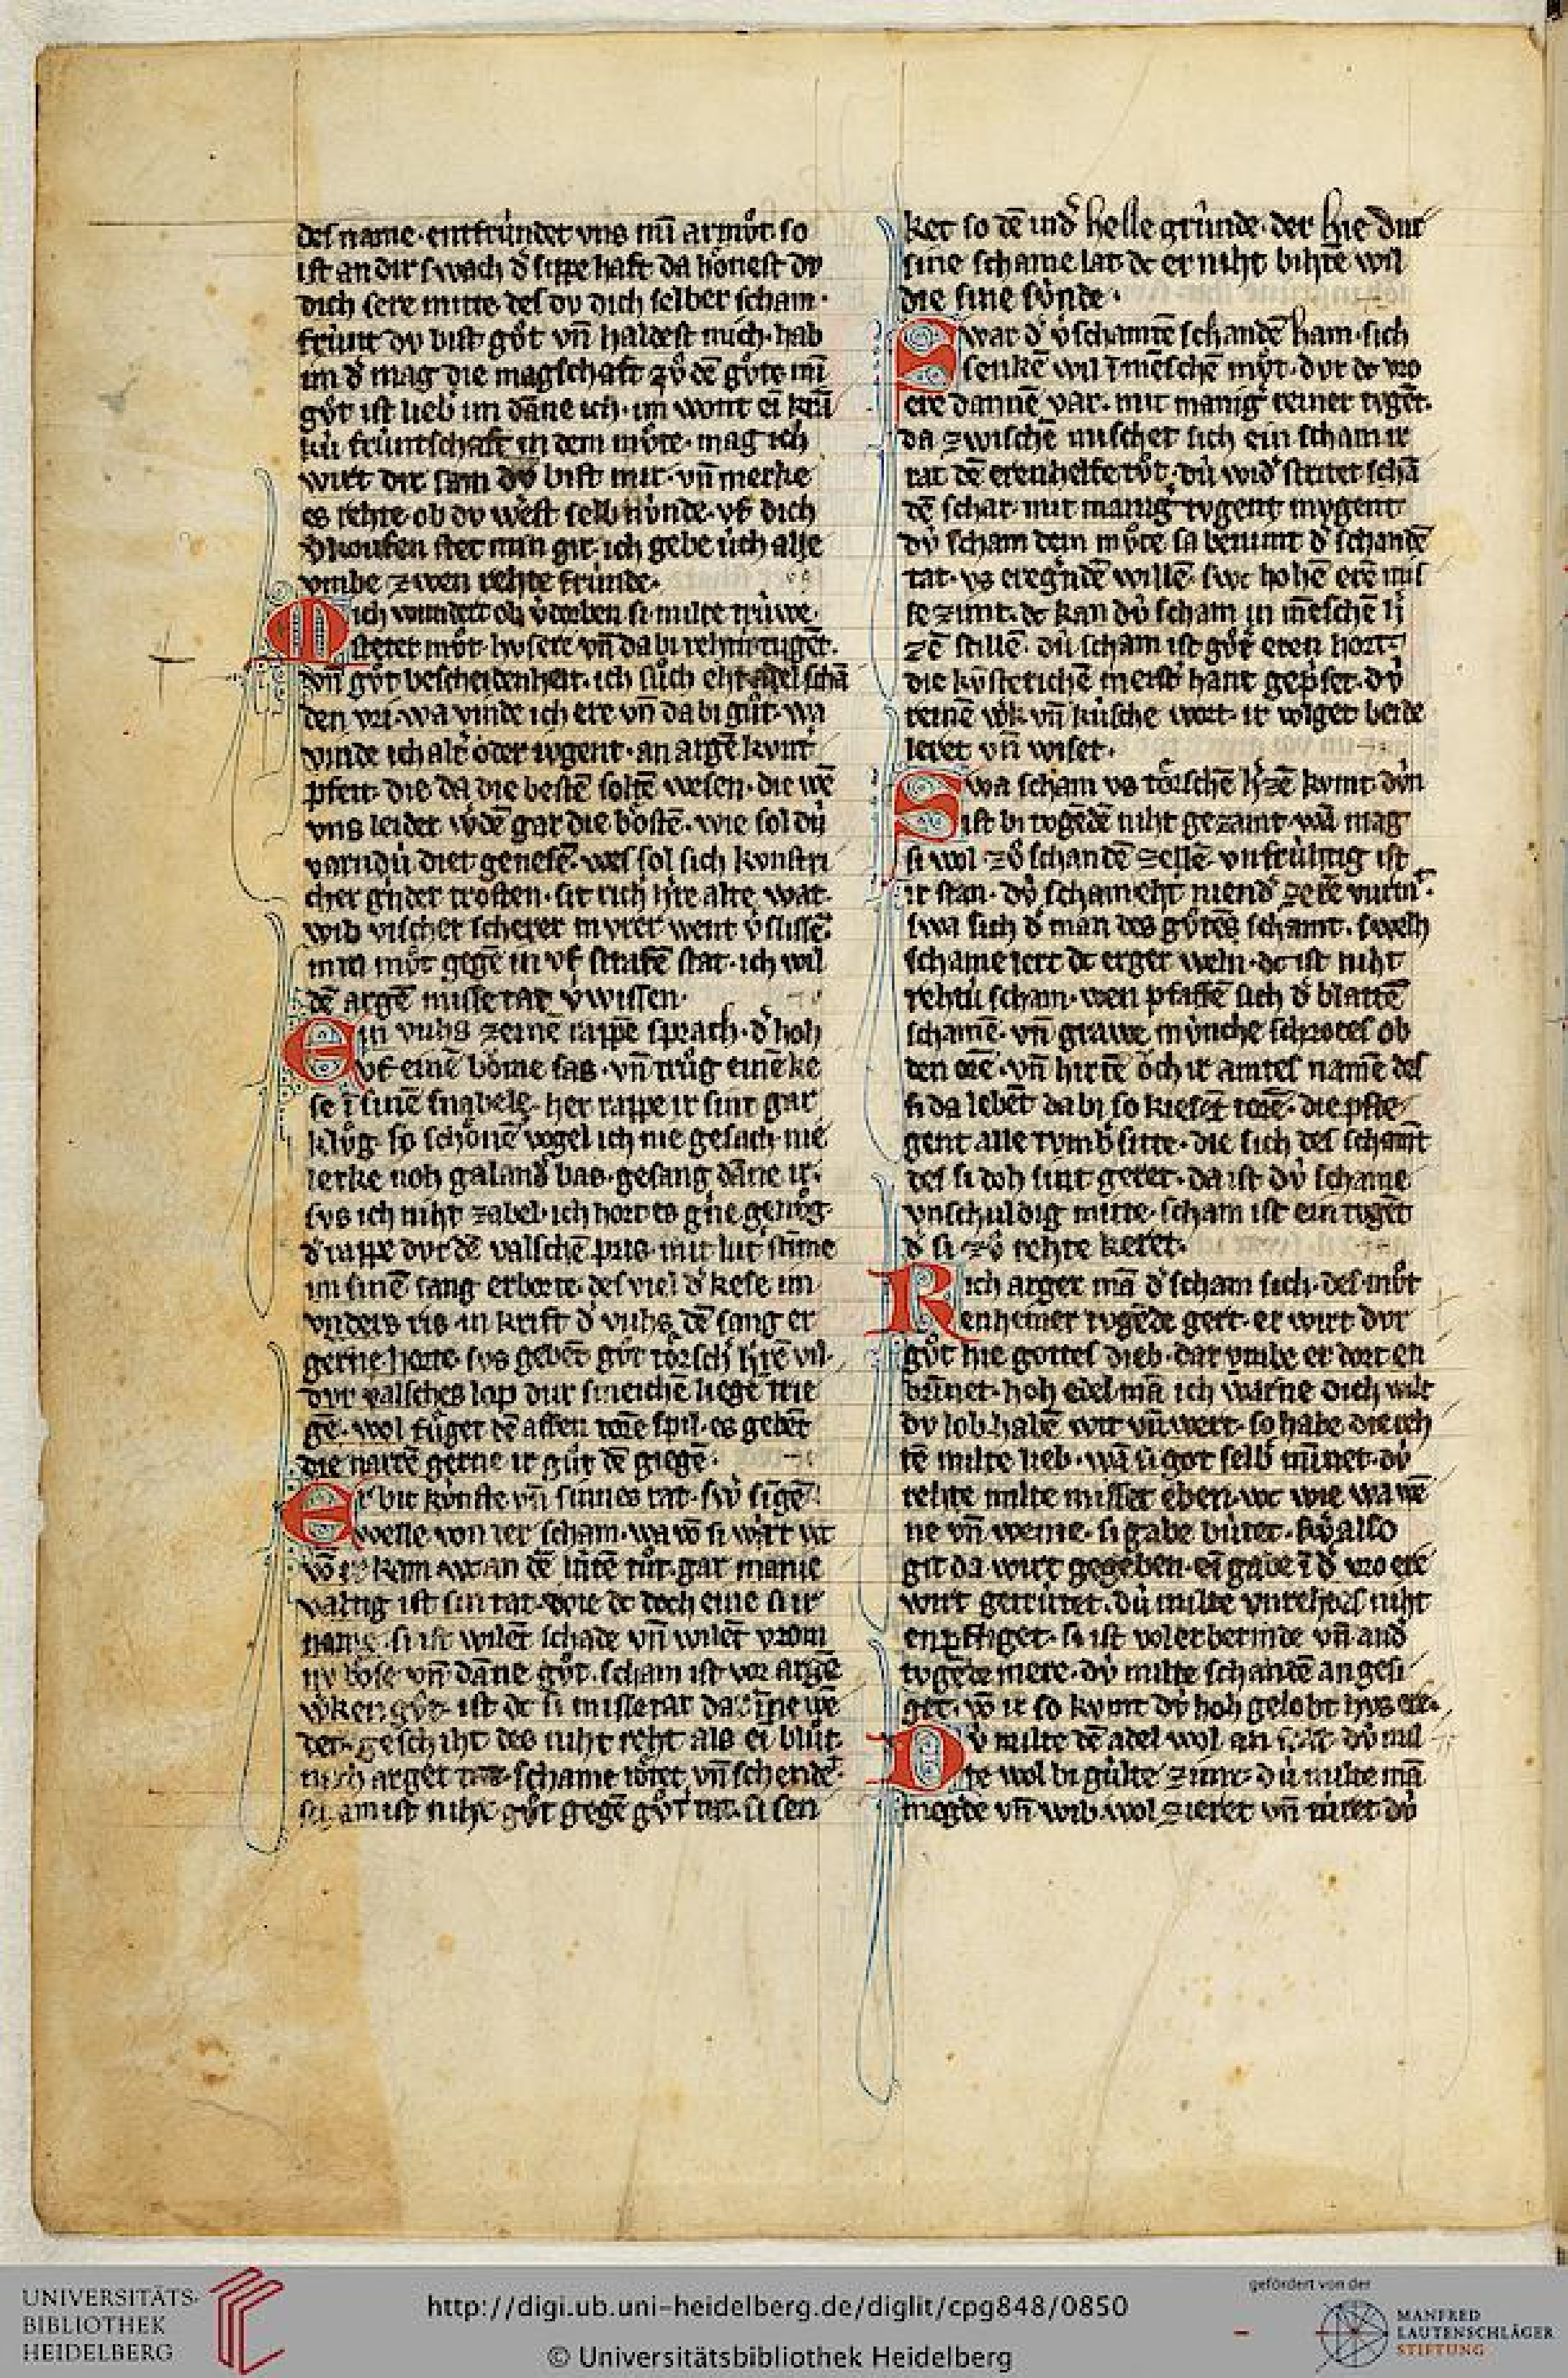 des name · entfrúndet vns mī armůt · so
ist an dir swach d̕ sippe haft da hőnest dv
dich sere mitte des dv dich selber scham ·
frúnt dv bist gůt vn̄ haldest mich · hab
im d̕ mag die magschaft zů dē gůte mī
gůt ist lieb im dāne ich · im wont ei krā
kú frúntschaft in dem můte · mag ich
wirt dir sam dv bist mir · vn̄ merke
es rehte ob dv west selb
stet min gir · ich gebe úch alle
vmbe zwen rehte frúnde ·
Mich wundert ob v̕dorben si milte trúwe ·
steter můt
vn̄ gůt bescheidenheit · ich sůch eht schā
den vri · wa vinde ich ere vn̄ da bi gůt · wa
vinde ich alt̕ oder tvgent · an argē kvnt̕
pfeit · die da die bestē soltē wesen · die wē
vns leider w̕dē gar die bősten · wie sol dú
diet genesē · wes sol sich kvnstri
cher grōsten · sit rich alte wat
wib vischer scherer went v̕slissē
miltē můt gegē im vf strafē stat · ich wil
dē argē misse tat v̕wissen ·
Ein vuhs zeine rappē sprach · d̕ hoh
vf einē bőme sas · vn̄ trůg einē ke
se ī sinē snabele · her rappe ir sint gar
klůg · so schőnē vogel ich nie gesach · nie
lerke noh galand̕ bas · gesang dāne ir ·
svs ich niht zabel · ich hort es g̕ne genůg
d̕ rappe dvr dē valschē pris · mit lut̕ stīme
im sinē sang erborte · des viel d̕ kese im
vnders ris · in krift d̕ vuhs dē sang er
gerne horte · svs gebēt gůt tőrsch h̕rē vil
dvr valsches lop dur smeichē liegē trie
gē · wol fůget dē affen torē spil · es gebēt
die narrē gerne ir gůt dē giegē ·
Er bit kúnste vn̄ sinnes rat · sw̕ sīgē
welle von der scham · wa vō si wirt
vō ir kam an dē lútē tůt · gar manic
valtig ist sin tat · doch eine si ir
name · si ist wilēt schade vn̄ wilēt vrom
nv bőse vn̄ dāne gůt · scham ist vor argē
w̕ken gůt · ist dc si missetat da īne wē
det · geschiht des niht reht als ei blůt
arget schame tőtet vn̄ schende̕t
scham ist niht gůt gegē gůt tat · si sen
ket so dē in d̕ helle grúnde · der hie dur
sine schame lat dc er niht bihtē wil
die sine súnde ·
Swar d̕ v̕schamtē schandē ham · sich
senkē wil ī mēschē můt · dvr dc vro
ere dannē var · mit manig̕ reiner tvgēt ·
da zwischē mischet sich ein scham ir
rat dē eren helfe tůt · dú wid̕ stritet schā
dē schar · mit manig̕ tvgent mvgent
dú scham dem můte sa benimt d̕ schandē
tat · vs eregndē willē · swc hohē erē mis
se zimt · dc kan dú scham in mēschē h̕
zē stillē · dú scham ist gůt̕ eren hort
die kvnsterichē meist̕ hant gepriset · dú
reinē w̕k vn̄ kúsche wort · ir volget beide
leret vn̄ wiset ·
Swa scham vs tőrschē h̕zē kvmt · dún
ist bi tvgēdē niht gezamt · wā mag
si wol zů schandē zellē · vnfrúhtig ist
ir stan · dú scham eht niend̕ zerē vrumt̕ ·
swa sich d̕ man des gůtēs schamt · swelh
schame lert dc erger weln · dc ist niht
rehtú scham · wen pfaffē sich d̕ blattē
schamē · vn̄ grawe múnche schrotes ob
den orē · vn̄ hirtē őch ir amtes namē des
si da lebēt da bi so kiesēt torē · die pfle
gent alle tvmb̕ sitte · die sich des schamt
des si doh sint geret · da ist dú schame
vnschuldig mitte · scham ist ein tvgēt
d̕ si zů rehte keret ·
Rich arger mā d̕ scham sich · des můt
enheiner tvgēde gert · er wirt dvr
gůt hie gottes dieb · dar vmbe er dort en
brīnet · hoh edel mā ich warne dich wilt
dv lob habē wit vn̄ wert · so habe die reh
tē milte lieb · wā si got selb̕ mīnet · dú
rehte milte misset eben · wc wie wa wē
ne vn̄ weme · si gabe bútet · sw̕ also
git da wirt gegeben · ei gabe ī d̕ vro ere
wirt getrútet · dú milte vnrehtes niht
enpfliget · si ist vol erbermde vn̄ and̕
tvgēde mere · dú milte schandē an gesi
get · vō ir so kvmt dú hoh gelobt hvs ere ·
Dú milte dē adel wol an stat · dú mil
te wol bi gúlte zimt · dú milte mā
megde vn̄ wib · wol zieret vn̄ túret · dú
UNIVERSITÄTS-
BIBLIOTHEK
HEIDELBERG
http://digi.ub.uni-heidelberg.de/diglit/cpg848/0850
© Universitätsbibliothek Heidelberg
gefördert von der
MANFRED
LAUTENSCHLÄGER
STIFTUNG